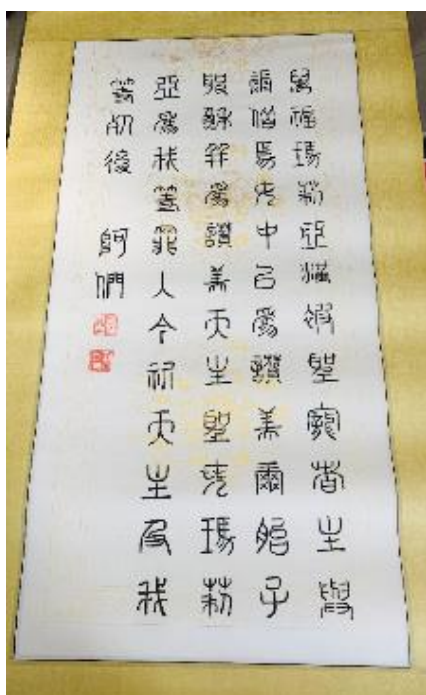 萬福瑪莉亞滿被聖寵者主與
偕焉女中己為讚美爾胎子
耶穌並為讚美天主聖母瑪莉
亞為我等罪人今祈天主及我
等後 阿們